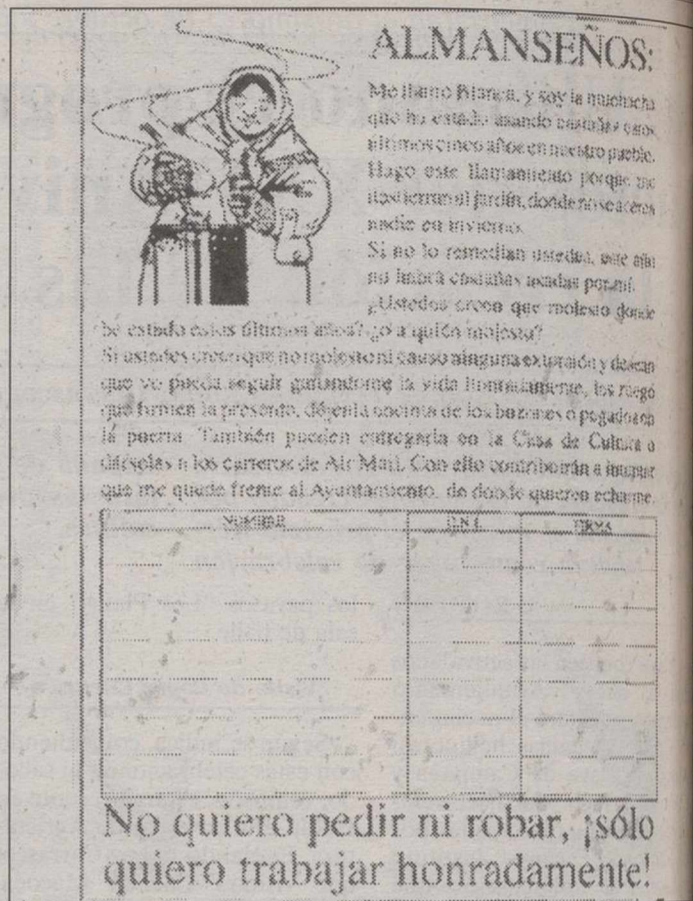 ALMANSEÑOS:
Me llamo Blanca, y soy la muchacha
que ha estado asando castañas estos
últimos cinco años en nuestro pueblo.
Hago este llamamiento porque me
destierran al jardín, donde no se acerca
nadie en invierno.
Si no lo remedian ustedes, este año
no habrá castañas asadas por mí.
¿Ustedes creen que molesto donde
he estado estos últimos años? ¿o a quién molesto?
Si ustedes creen que no molesto ni causo ninguna extorsión y desean
que yo pueda seguir ganándome la vida honradamente, les ruego
que firmen la presente, déjenla encima de los buzones o pegada en
la puerta. También pueden entregarla en la Casa de Cultura o
dárselas a los carteros de Air Mail. Con ello contribuirán a
que me quede frente al Ayuntamiento, de donde quieren echarme.
NOMBRE D.N.I. FIRMA
No quiero pedir ni robar, ¡sólo
quiero trabajar honradamente!